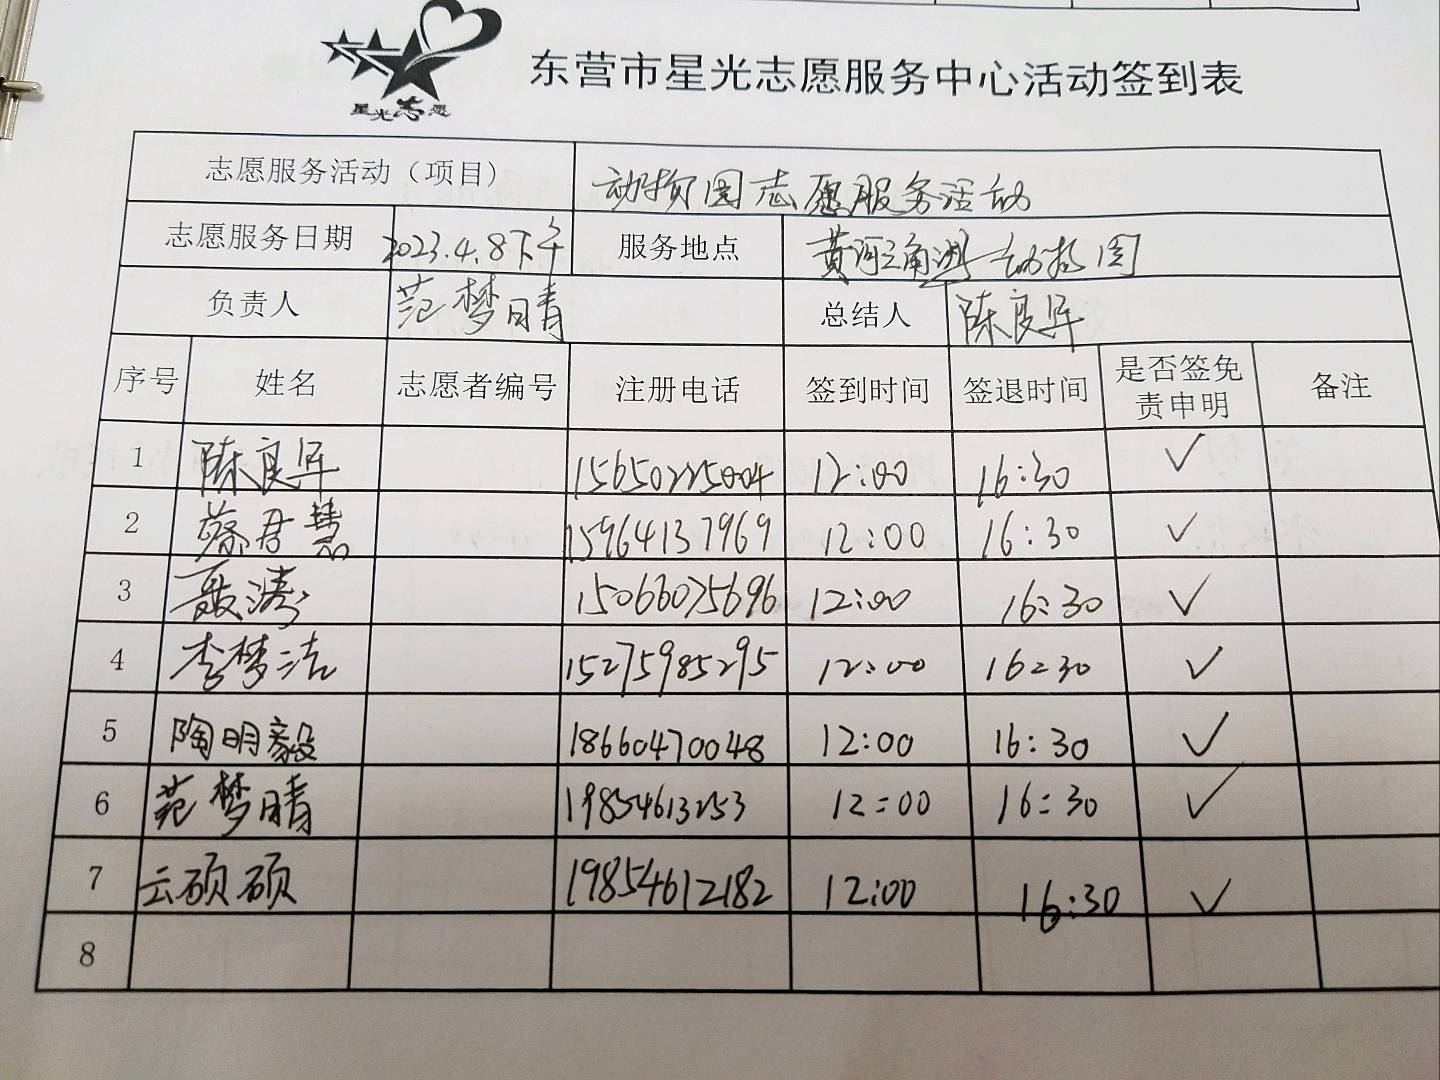 星光志愿
东营市星光志愿服务中心活动签到表
志愿服务活动（项目） 动物园志愿服务活动
志愿服务日期 2023.4.8下午 服务地点 黄河三角洲动物园
负责人 范梦晴 总结人 陈良军
序号 姓名 志愿者编号 注册电话 签到时间 签退时间 是否签免责申明 备注
1 陈良军 15650225004 12:00 16:30 ✓
2 蔡君慧 15964137969 12:00 16:30 ✓
3 聂涛 15066075696 12:00 16:30 ✓
4 李梦洁 15275985295 12:00 16:30 ✓
5 陶明毅 18660470048 12:00 16:30 ✓
6 范梦晴 19854613253 12:00 16:30 ✓
7 云硕硕 19854612182 12:00 16:30 ✓
8